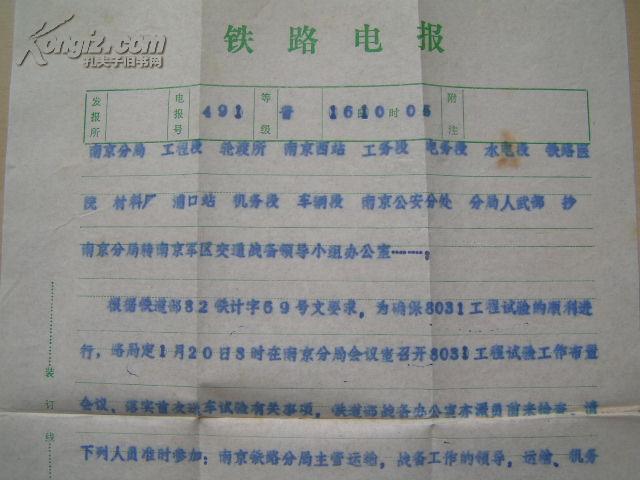 Kongfz.com
孔夫子旧书网
铁路电报
发报所 电报号 491 等级 普 1610时05 附注
南京分局 工程段 轮渡所 南京西站 工务段 电务段 水电段 铁路医
院 材料厂 浦口站 机务段 车辆段 南京公安分处 分局人武部 抄
南京分局转南京军区交通战备领导小组办公室——:
根据铁道部82铁计字69号文要求,为确保8031工程试验的顺利进
行,路局定1月20日8时在南京分局会议室召开8031工程试验工作布置
会议,落实首次试车试验有关事项,铁道部战备办公室亦派员前来检查,请
下列人员准时参加:南京铁路分局主管运输,战备工作的领导,运输、机务
装订线